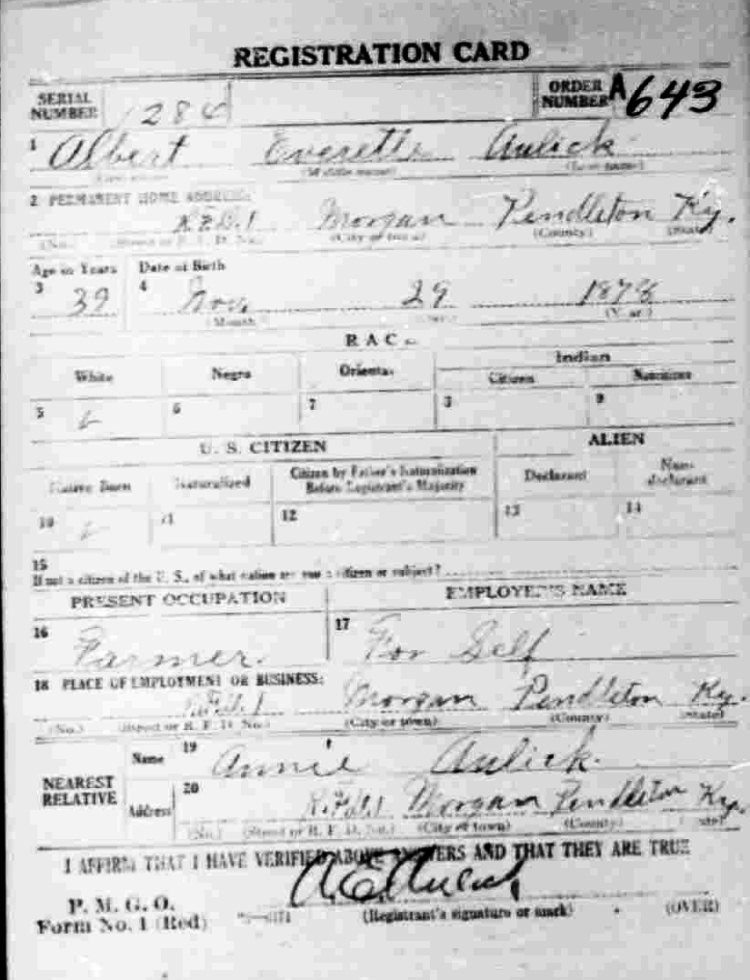 REGISTRATION CARD
SERIAL NUMBER 1284 ORDER NUMBER A643
1 Albert Everette Aulick
(Middle name) (Last name)
2 PERMANENT HOME ADDRESS:
R.F.D.1 Morgan Pendleton Ky.
(No.) (Street or R. F. D. No.) (City or town) (County) (State)
Age in Years Date of Birth
3 39 4 Nov. 29 1878
(Month) (Year)
RACE
White Negro Oriental Indian
Citizen Noncitizen
5 6 7 8 9
U. S. CITIZEN ALIEN
Native Born Naturalized Citizen by Father's Naturalization Before Registrant's Majority Declarant Non-declarant
10 11 12 13 14
15
If not a citizen of the U. S., of what nation are you a citizen or subject?
PRESENT OCCUPATION EMPLOYER'S NAME
16 Farmer. 17 For Self
18 PLACE OF EMPLOYMENT OR BUSINESS:
R.F.D.1 Morgan Pendleton Ky.
(No.) (Street or R. F. D. No.) (City or town) (County) (State)
NEAREST RELATIVE
Name 19 Annie Aulick.
Address 20 R.F.D.1 Morgan Pendleton Ky.
(No.) (Street or R. F. D. No.) (City or town) (County) (State)
I AFFIRM THAT I HAVE VERIFIED ABOVE ANSWERS AND THAT THEY ARE TRUE
A E Aulick
P. M. G. O.
Form No. 1 (Red) (Registrant's signature or mark) (OVER)